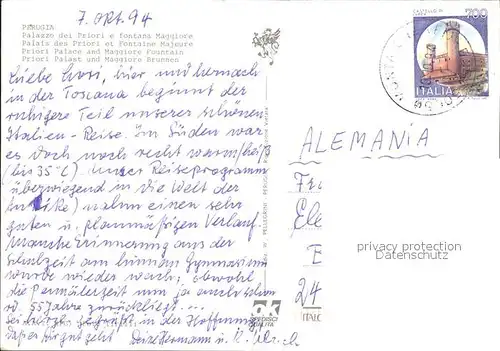 7. Okt. 94
PERUGIA
Palazzo dei Priori e fontana Maggiore
Palais des Priori et Fontaine Majeure
Priori Palace and Maggiore Fountain
Priori Palast und Maggiore Brunnen
700
ITALIA
Liebe Lossi, hier und hernach
in der Toscana beginnt der
ruhigere Teil unserer schönen
Italien-Reise. Im Süden war
es doch noch recht warm/heiß
(bis 35°C) unser Reiseprogramm
(überwiegend in die Welt der
Antike) nahm einen sehr
guten u. planmäßigen Verlauf
Manche Erinnerung aus der
Schulzeit am human. Gymnasium
wurde wieder wach, obwohl
die Pennälerzeit nun ja auch schon
rd. 55 Jahre zurückliegt...
Sei herzl. gegrüßt in der Hoffnung,
daß es Dir gut geht! Deine Hermann u.
ALEMANIA
Fr
Ele
24
privacy protection
Datenschutz